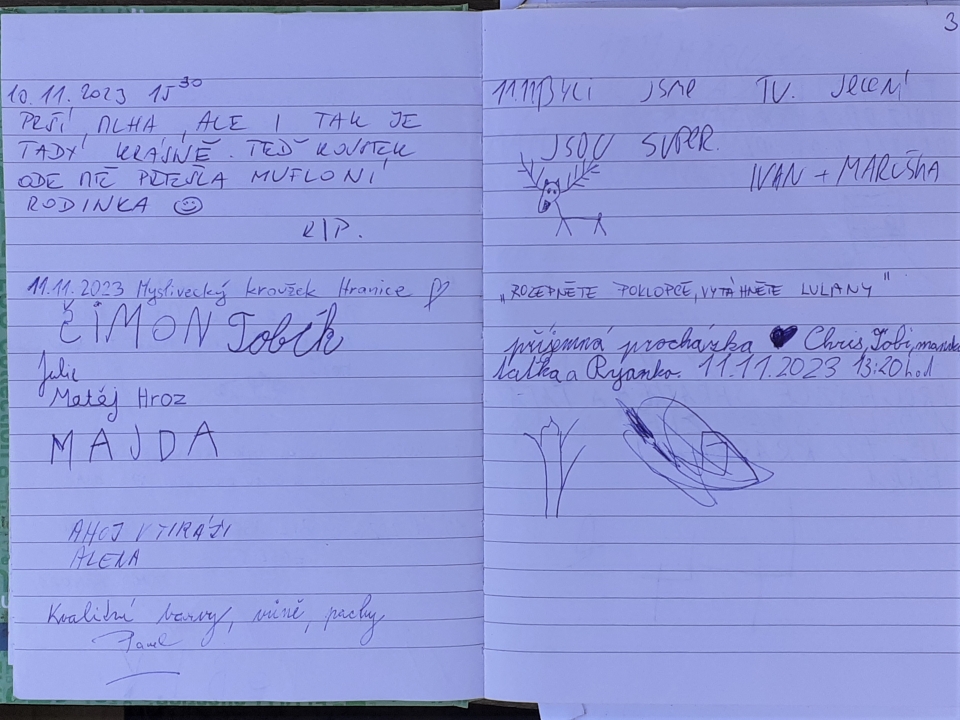 10.11.2023 15³⁰
PRŠÍ, MLHA, ALE I TAK JE
TADY KRÁSNĚ. TEĎ KOUSEK
ODE MĚ PŘEŠLA MUFLONÍ
RODINKA ☺
R|P.
11.11.2023 Myslivecký kroužek Hranice ♡
ŠIMON Tobík
Julie
Matěj Hroz
MAJDA
AHOJ VTIRÁJI
ALENA
Kvalitní barvy, vůně, pachy
Pavel
3
11.11 BYLI JSME TU. JELENI
JSOU SUPER.
IVAN + MARUŠKA
„ROZEPNĚTE POKLOPCE, VYTÁHNĚTE LULANY"
příjemná procházka ♥ Chris, Tobi,
taťka a Ryanko. 11.11.2023 13:20hod